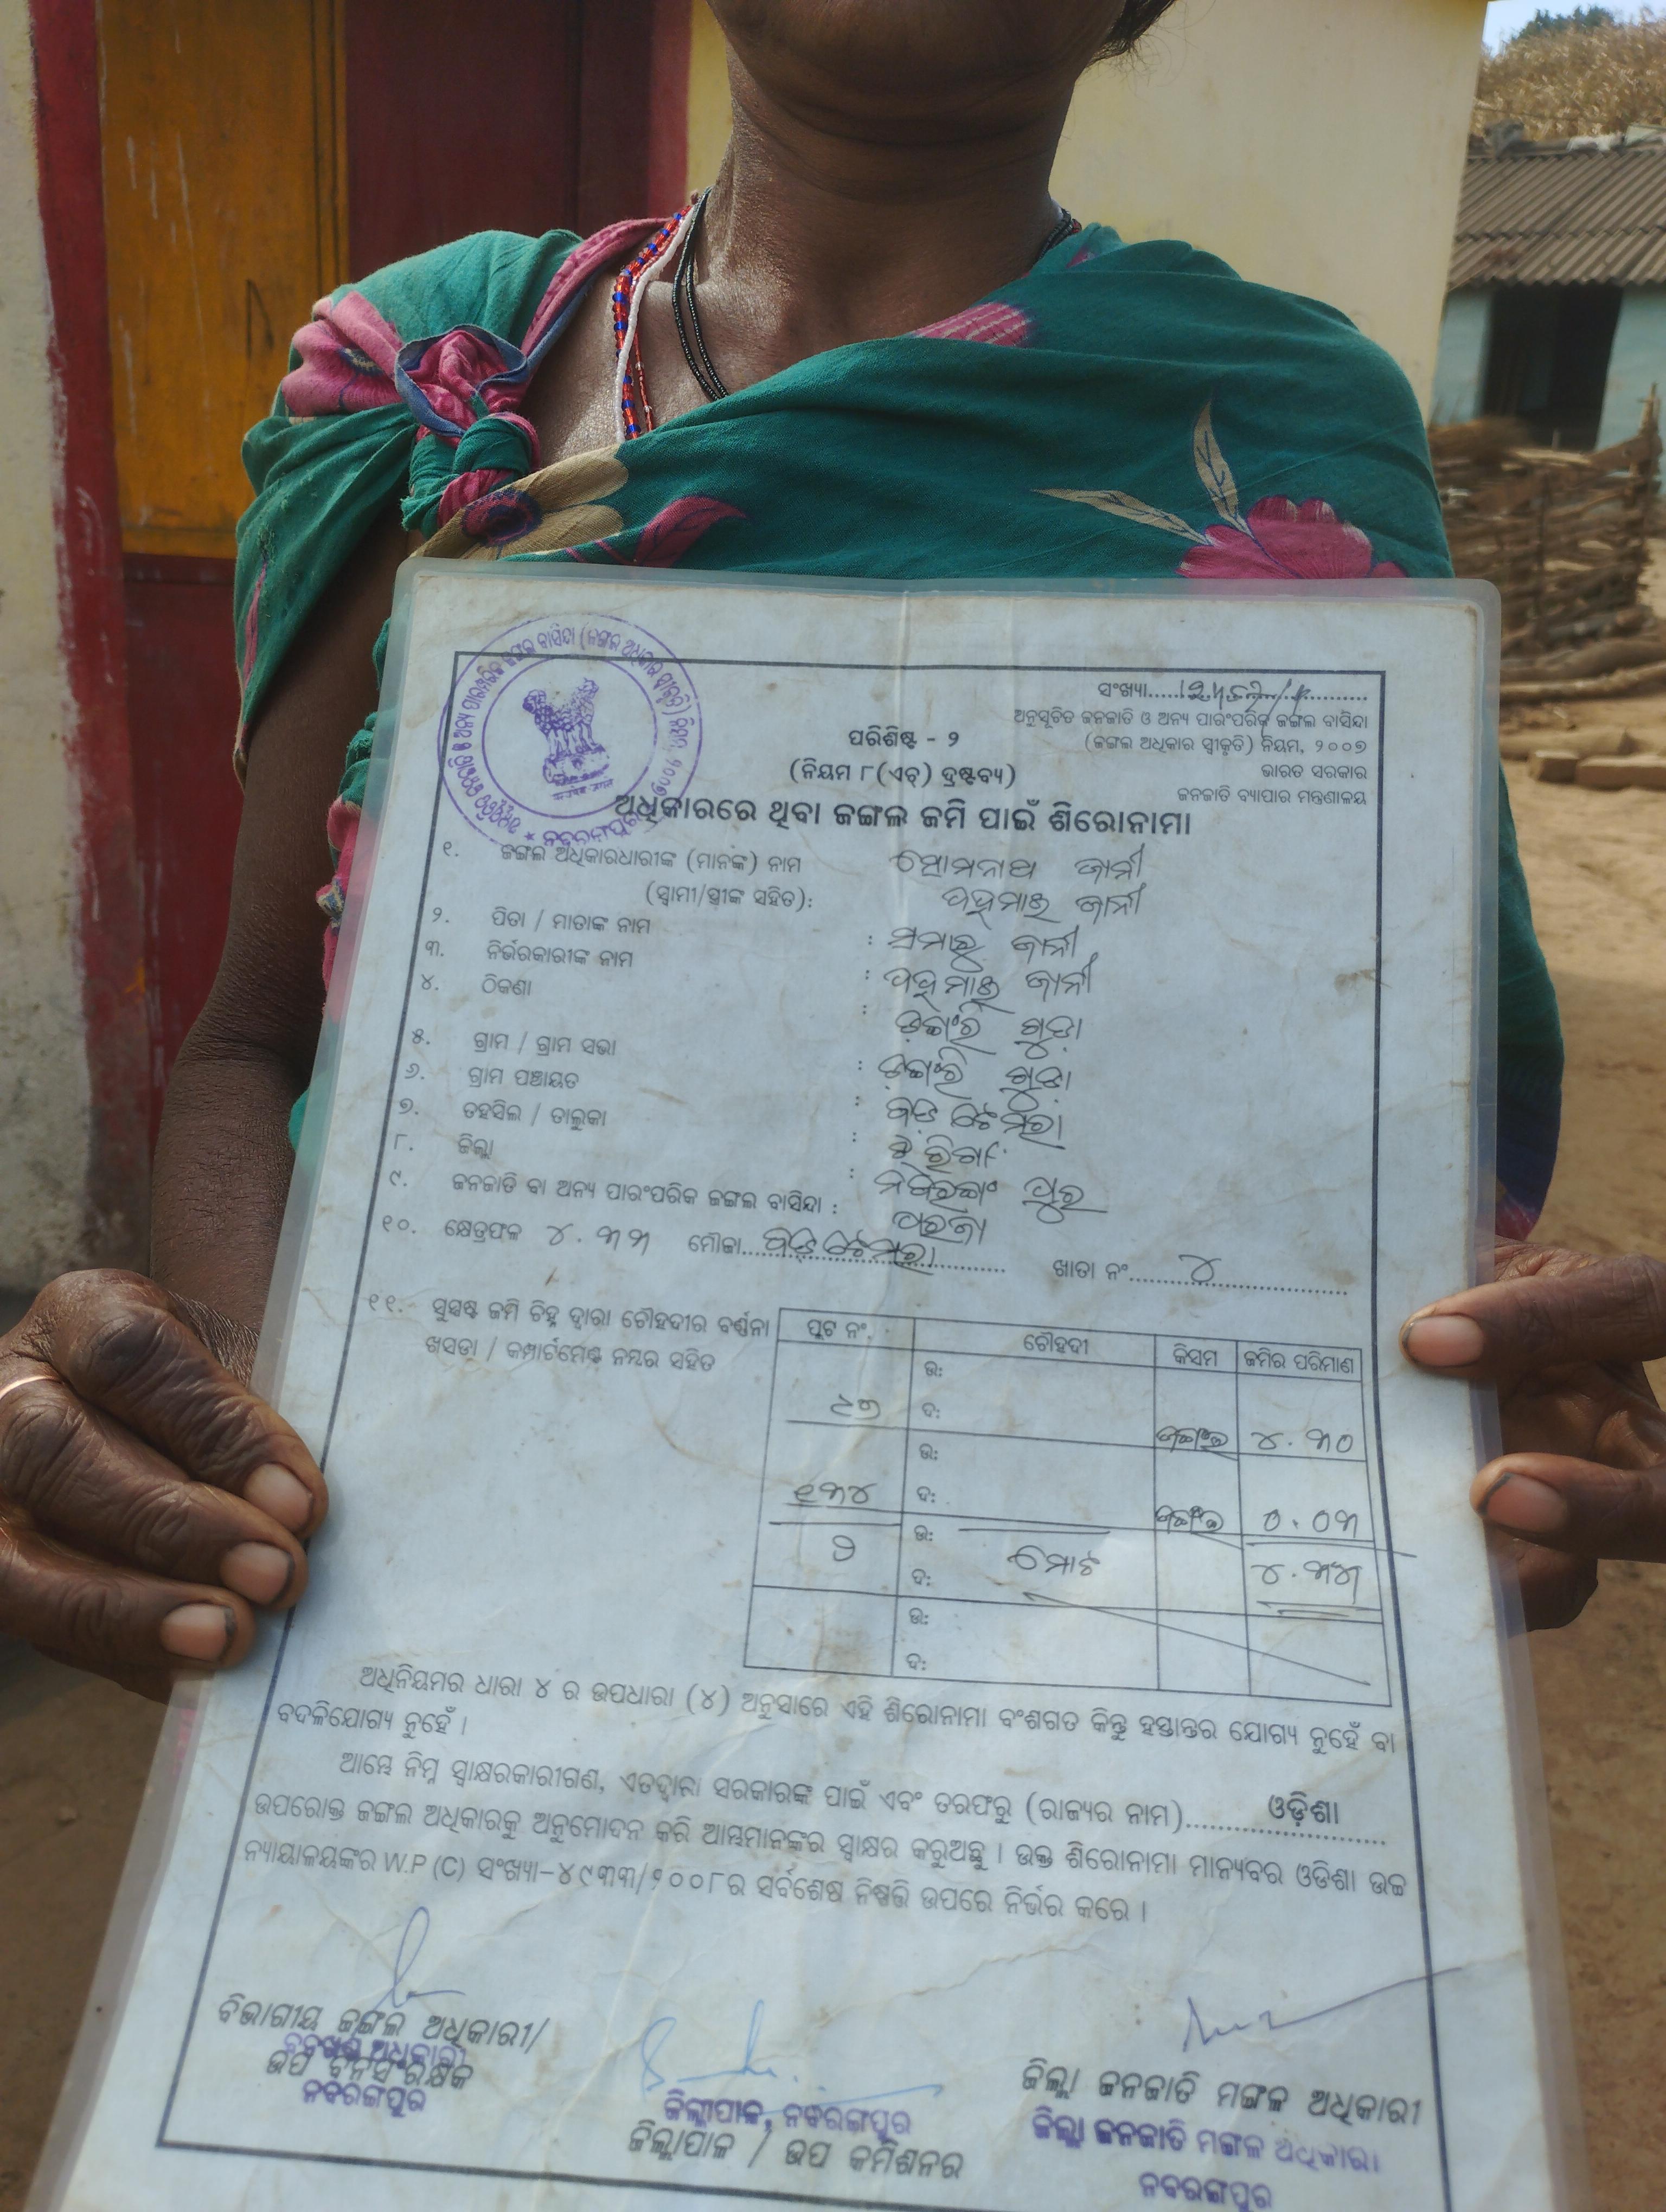 ସଂଖ୍ୟା
ଅନୁସୂଚିତ ଜନଜାତି ଓ ଅନ୍ୟ ପାରଂପରିକ ଜଙ୍ଗଲ ବାସିନ୍ଦା
(ଜଙ୍ଗଲ ଅଧିକାର ସ୍ୱୀକୃତି) ନିୟମ, ୨୦୦୭
ଭାରତ ସରକାର
ଜନଜାତି ବ୍ୟାପାର ମନ୍ତ୍ରଣାଳୟ
ପରିଶିଷ୍ଟ - ୨
(ନିୟମ ୮(ଏଚ୍) ଦ୍ରଷ୍ଟବ୍ୟ)
ଅଧିକାରରେ ଥିବା ଜଙ୍ଗଲ ଜମି ପାଇଁ ଶିରୋନାମା
୧. ଜଙ୍ଗଲ ଅଧିକାରଧାରୀଙ୍କ (ମାନଙ୍କ) ନାମ ଜାନୀ
(ସ୍ୱାମୀ/ସ୍ତ୍ରୀଙ୍କ ସହିତ): ଜାନୀ
୨. ପିତା / ମାତାଙ୍କ ନାମ : ଜାନୀ
୩. ନିର୍ଭରକାରୀଙ୍କ ନାମ : ଜାନୀ
୪. ଠିକଣା : ଗୁଡ଼ା
୫. ଗ୍ରାମ / ଗ୍ରାମ ସଭା : ଗୁଡ଼ା
୬. ଗ୍ରାମ ପଞ୍ଚାୟତ : ବଡ଼
୭. ତହସିଲ / ତାଲୁକା :
୮. ଜିଲ୍ଲା :
୯. ଜନଜାତି ବା ଅନ୍ୟ ପାରଂପରିକ ଜଙ୍ଗଲ ବାସିନ୍ଦା : ପରଜା
୧୦. କ୍ଷେତ୍ରଫଳ ୪.୩୩ ମୌଜା ଖାତା ନଂ ୪
୧୧. ସୁସ୍ପଷ୍ଟ ଜମି ଚିହ୍ନ ଦ୍ୱାରା ଚୌହଦୀର ବର୍ଣ୍ଣନା
ଖସଡା / କମ୍ପାର୍ଟମେଣ୍ଟ ନମ୍ବର ସହିତ
ପ୍ଲଟ ନଂ. ଚୌହଦୀ କିସମ ଜମିର ପରିମାଣ
ଉ:
ଦ: ୪.୩୦
ଉ:
୧୩୪ ଦ: ୦.୦୩
ଉ:
୨ ମୋଟ
ଦ:
ଉ:
ଦ:
ଅଧିନିୟମର ଧାରା ୪ ର ଉପଧାରା (୪) ଅନୁସାରେ ଏହି ଶିରୋନାମା ବଂଶଗତ କିନ୍ତୁ ହସ୍ତାନ୍ତର ଯୋଗ୍ୟ ନୁହେଁ ବା
ବଦଳିଯୋଗ୍ୟ ନୁହେଁ ।
ଆମ୍ଭେ ନିମ୍ନ ସ୍ୱାକ୍ଷରକାରୀଗଣ, ଏତଦ୍ୱାରା ସରକାରଙ୍କ ପାଇଁ ଏବଂ ତରଫରୁ (ରାଜ୍ୟର ନାମ) ଓଡ଼ିଶା
ଉପରୋକ୍ତ ଜଙ୍ଗଲ ଅଧିକାରକୁ ଅନୁମୋଦନ କରି ଆମ୍ଭମାନଙ୍କର ସ୍ୱାକ୍ଷର କରୁଅଛୁ । ଉକ୍ତ ଶିରୋନାମା ମାନ୍ୟବର ଓଡିଶା ଉଚ୍ଚ
ନ୍ୟାୟାଳୟଙ୍କର W.P (C) ସଂଖ୍ୟା-୪୯୩୩/୨୦୦୮ର ସର୍ବଶେଷ ନିଷ୍ପତ୍ତି ଉପରେ ନିର୍ଭର କରେ ।
ବିଭାଗୀୟ ଜଙ୍ଗଲ ଅଧିକାରୀ/
ଉପ ବନସଂରକ୍ଷକ
ନବରଙ୍ଗପୁର
ଜିଲ୍ଲାପାଳ, ନବରଙ୍ଗପୁର
ଜିଲ୍ଲାପାଳ / ଉପ କମିଶନର
ଜିଲ୍ଲା ଜନଜାତି ମଙ୍ଗଳ ଅଧିକାରୀ
ଜିଲ୍ଲା ଜନଜାତି ମଙ୍ଗଳ ଅଧିକାରୀ
ନବରଙ୍ଗପୁର